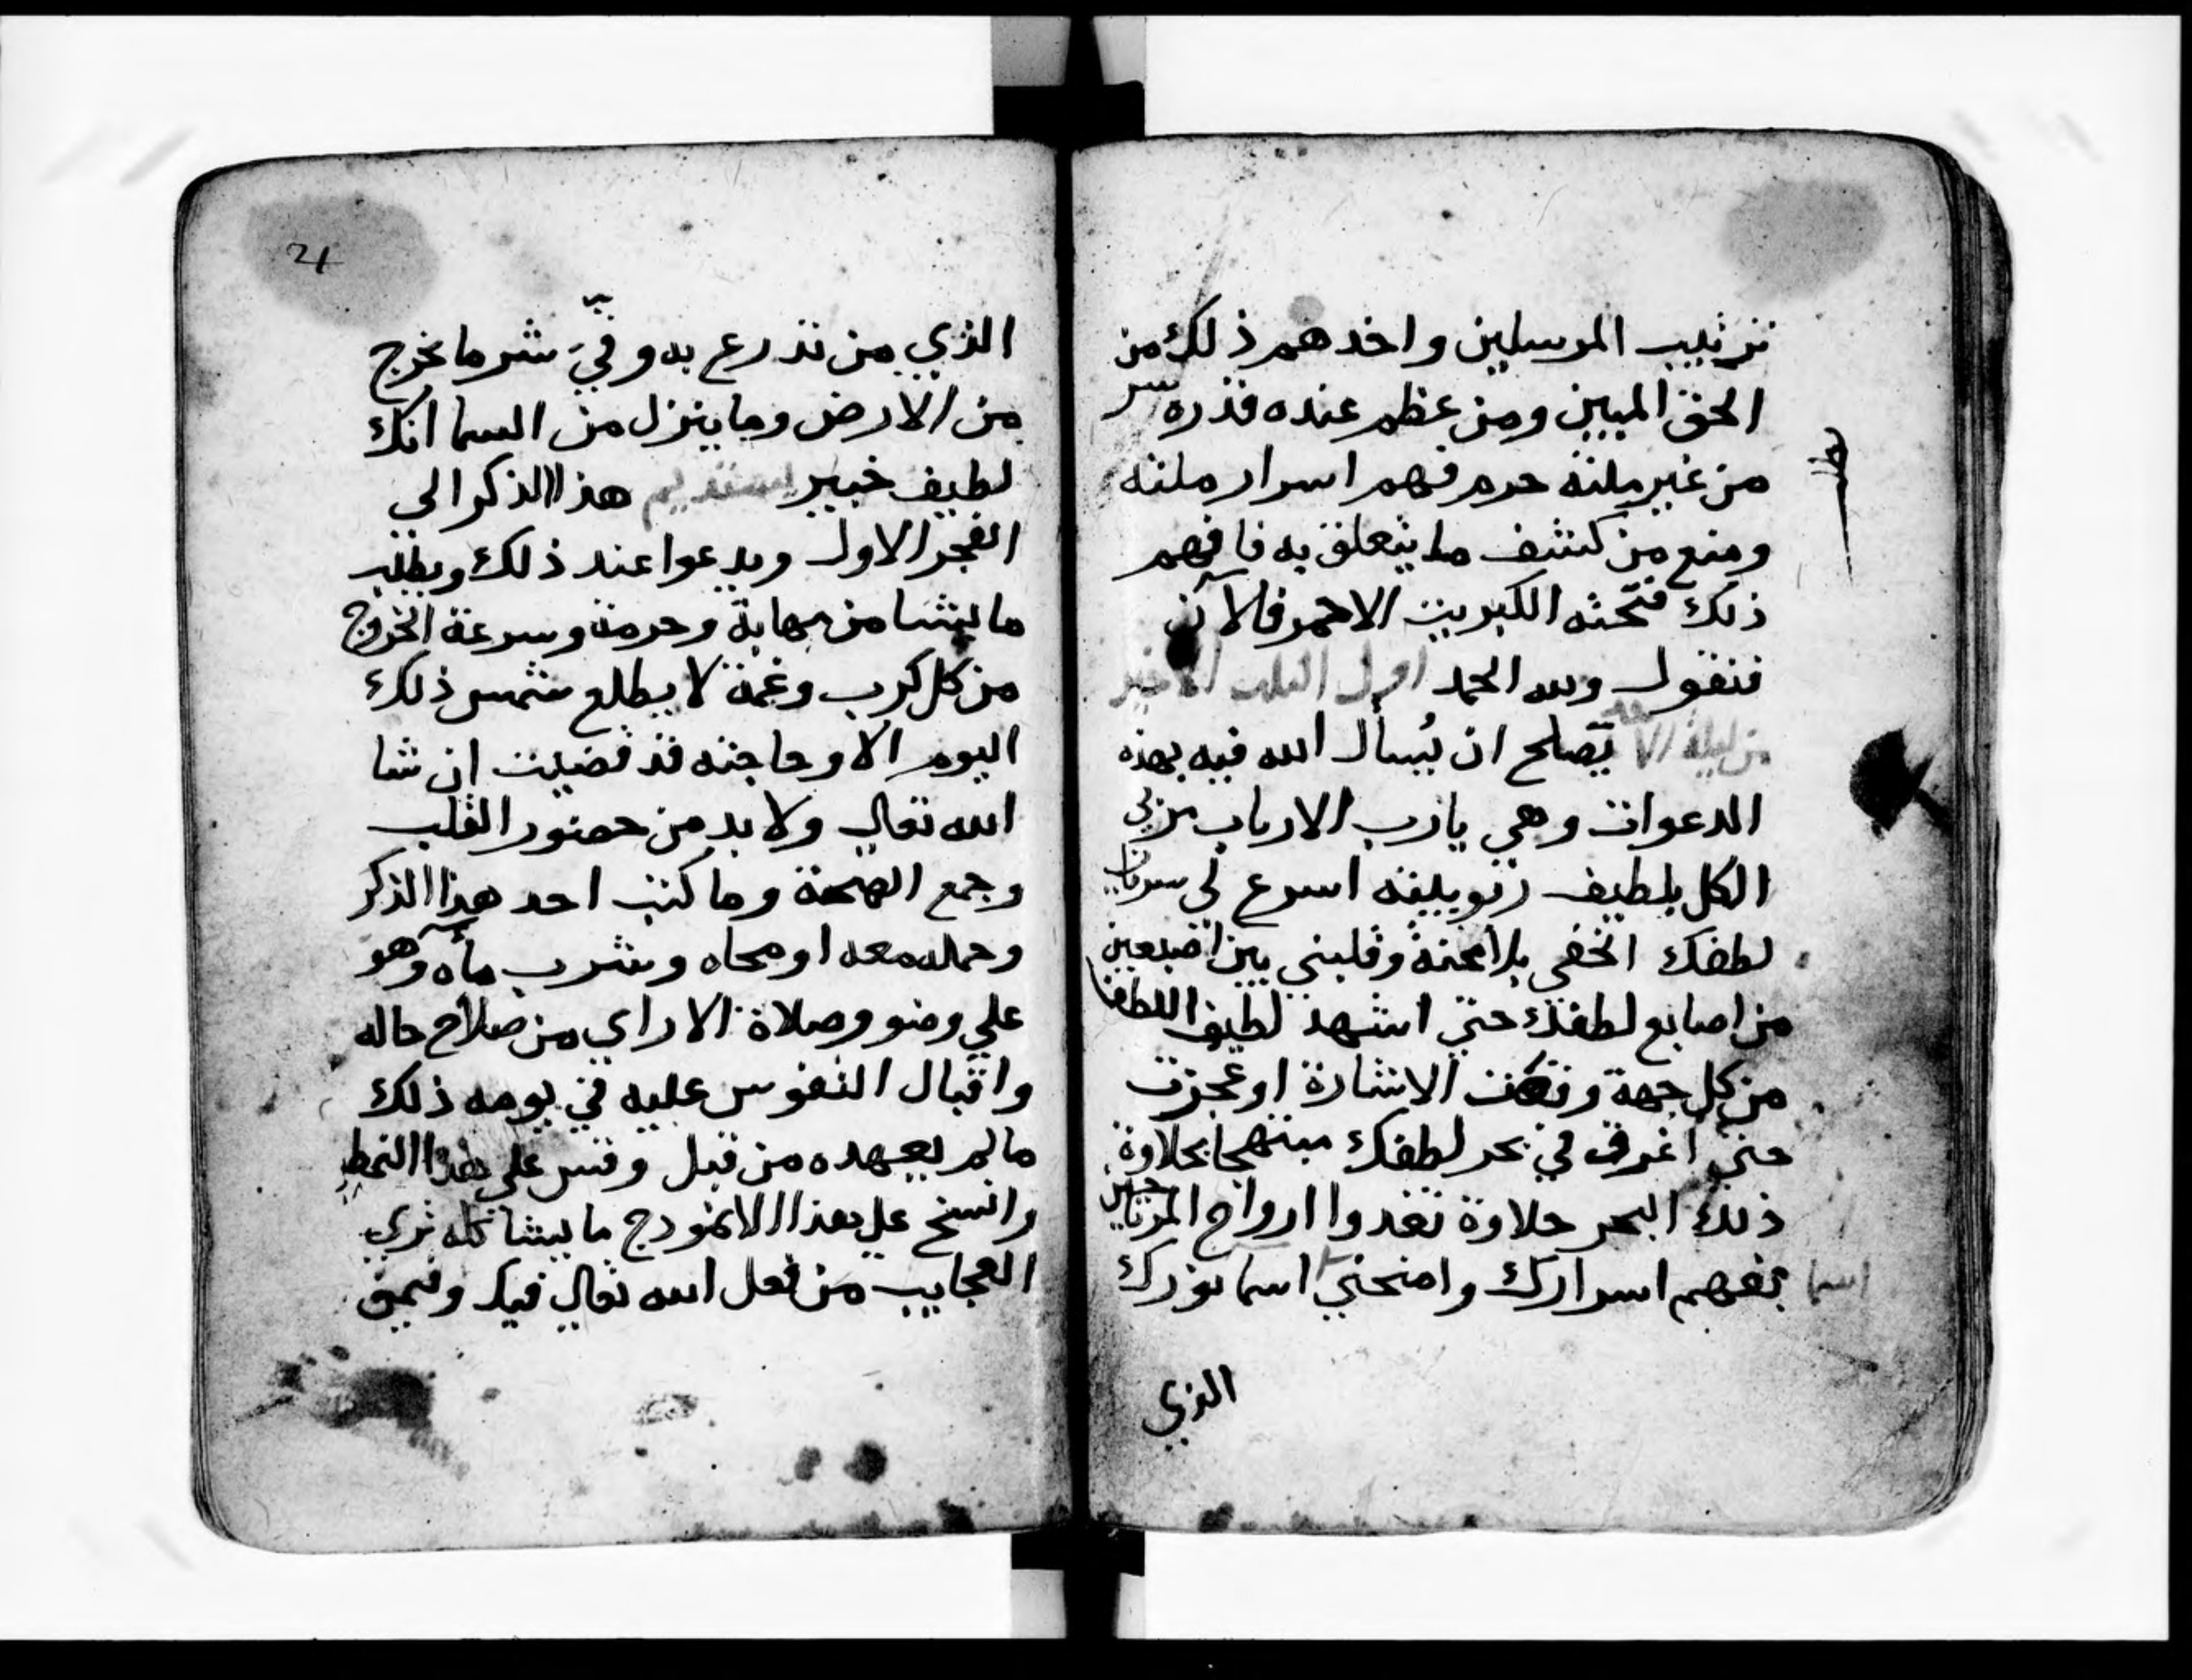 ترتيب المرسلين واخدهم ذلك من
الحق المبين ومن عظم عنده قدره سر
من غير ملته حرم فهم اسرار ملته
ومنع من كشف ما يتعلق به فافهم
ذلك فتحته الكبريت الاحمر فالآن
فنقول ولله الحمد اول الثلث الاخير
من ليلة الا يصلح ان يُسأل الله فيه بهذه
الدعوات وهي يارب الارباب مربي
الكل بلطيف ربوبيته اسرع لي سريان
لطفك الخفي بلا محنة وقلبني بين اصبعين
من اصابع لطفك حتى اشهد لطيف اللطف
من كل جهة وتهت الاشارة او عجزت
حتى اغرق في بحر لطفك مبتهجا بحلاوة
ذلك البحر حلاوة تغدوا ارواح المرتاحين
بفهم اسرارك وامنحني اسما نورك
اسما
الذي
21
الذي من تدرع به وقيَ شر ما يخرج
من الارض وما ينزل من السما انك
لطيف خبير يستديم هذا الذكر الى
الفجر الاول ويدعوا عند ذلك ويطلب
ما يشا من مهابة وحرمة وسرعة الخروج
من كل كرب وغمة لا يطلع شمس ذلك
اليوم الا وحاجته قد قضيت ان شا
الله تعالى ولا بد من حضور القلب
وجمع الهمة وما كتب احد هذا الذكر
وحمله معه او محاه وشرب مأه وهو
على وضو وصلاة الا راي من صلاح حاله
واقبال النفوس عليه في يومه ذلك
ما لم يعهده من قبل وقس على هذا النمط
وانسج على هذا الانموذج ما يشاكله ترى
العجايب من فعل الله تعالى فيك وفيمن